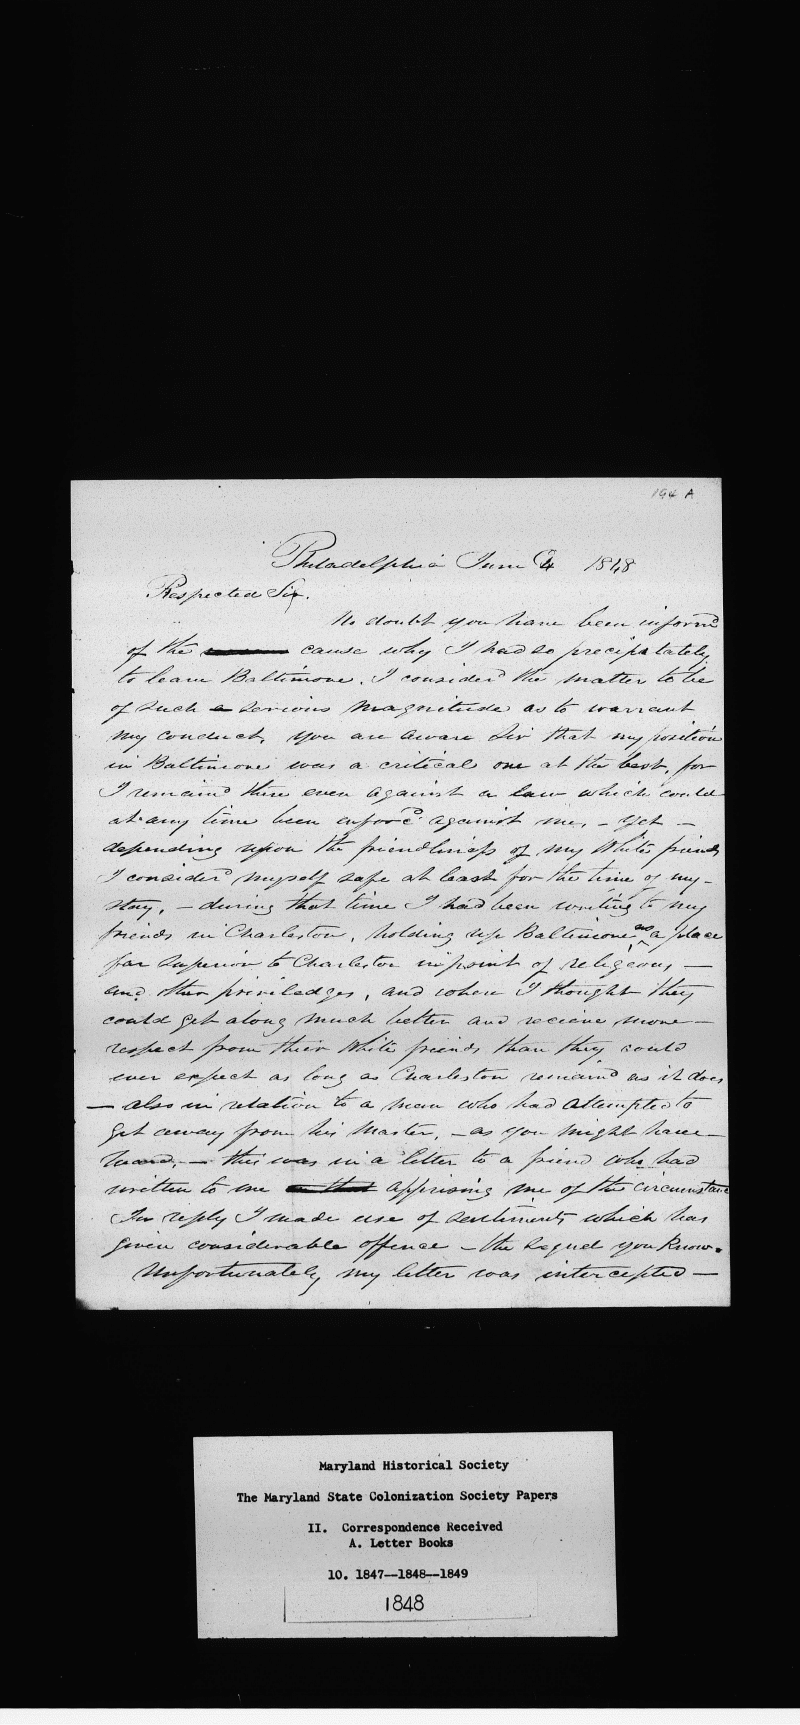 194 A
Philadelphia June 4 1848
Respected Sir.
No doubt you have been informd
of the cause why I had so precipitately
to leave Baltimore. I considerd the matter to be
of such a serious magnitude as to warrant
my conduct. you are aware Sir that my position
in Baltimore was a critical one at the best, for
I remaind there even against a law which could
at any time been enforcd against me, - yet -
depending upon the friendliness of my White friends
I considerd myself safe at least for the time of my-
stay, - during that time I had been writing to my
friends in Charleston, holding up Baltimore as a place
far superior to Charleston in point of religeous, -
and other priviledges, and where I thought they
could get along much better and recieve more -
respect from their White friends than they could
ever expect as long as Charleston remaind as it does
- also in relation to a man who had attempted to
get away from his Master, - as you might have -
heard, - this was in a letter to a friend who had
written to me apprising me of the circumstance
In reply I made use of sentiments which has
given considerable offence - the sequel you know.
Unfortunately my letter was intercepted -
Maryland Historical Society
The Maryland State Colonization Society Papers
II. Correspondence Received
A. Letter Books
10. 1847--1848--1849
1848